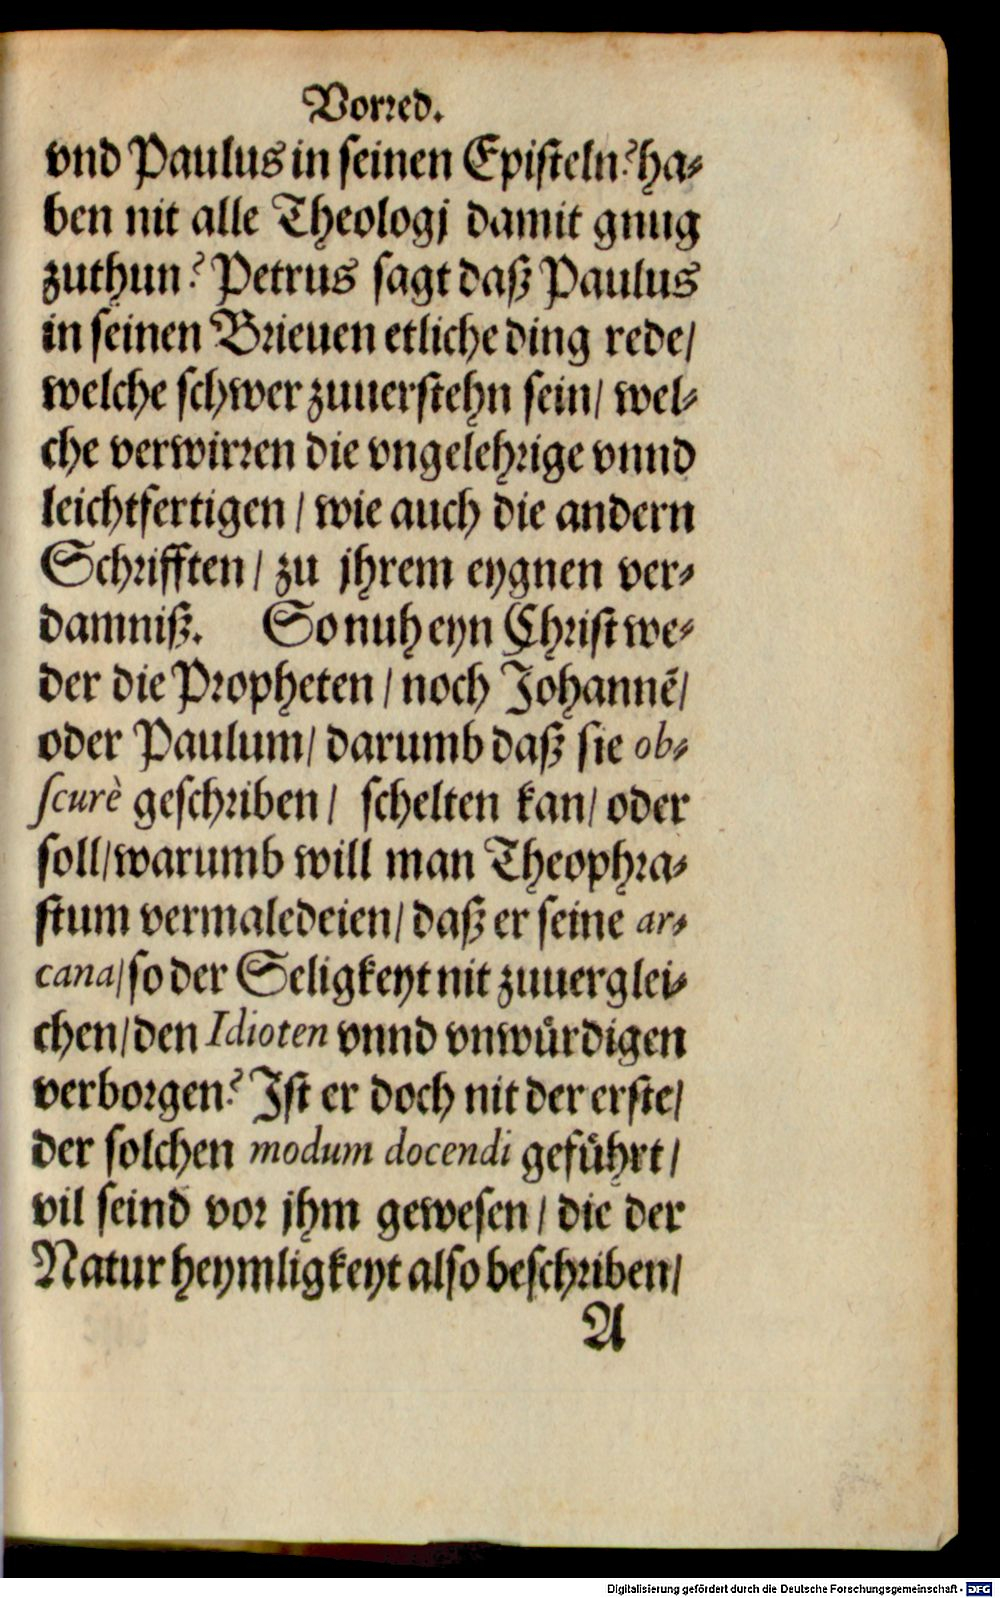 Vorred.
vnd Paulus in seinen Episteln? ha⸗
ben nit alle Theologj damit gnug
zuthun? Petrus sagt daß Paulus
in seinen Brieuen etliche ding rede/
welche schwer zuuerstehn sein/ wel⸗
che verwirren die vngelehrige vnnd
leichtfertigen/ wie auch die andern
Schrifften/ zu jhrem eygnen ver⸗
damniß. So nuh eyn Christ we⸗
der die Propheten/ noch Johannẽ/
oder Paulum/ darumb daß sie ob⸗
scurè geschriben/ schelten kan/ oder
soll/ warumb will man Theophra⸗
stum vermaledeien/ daß er seine ar⸗
cana/ so der Seligkeyt nit zuuerglei⸗
chen/ den Idioten vnnd vnwuͤrdigen
verborgen? Ist er doch nit der erste/
der solchen modum docendi gefuͤhrt/
vil seind vor jhm gewesen/ die der
Natur heymligkeyt also beschriben/
A
Digitalisierung gefördert durch die Deutsche Forschungsgemeinschaft - DFG